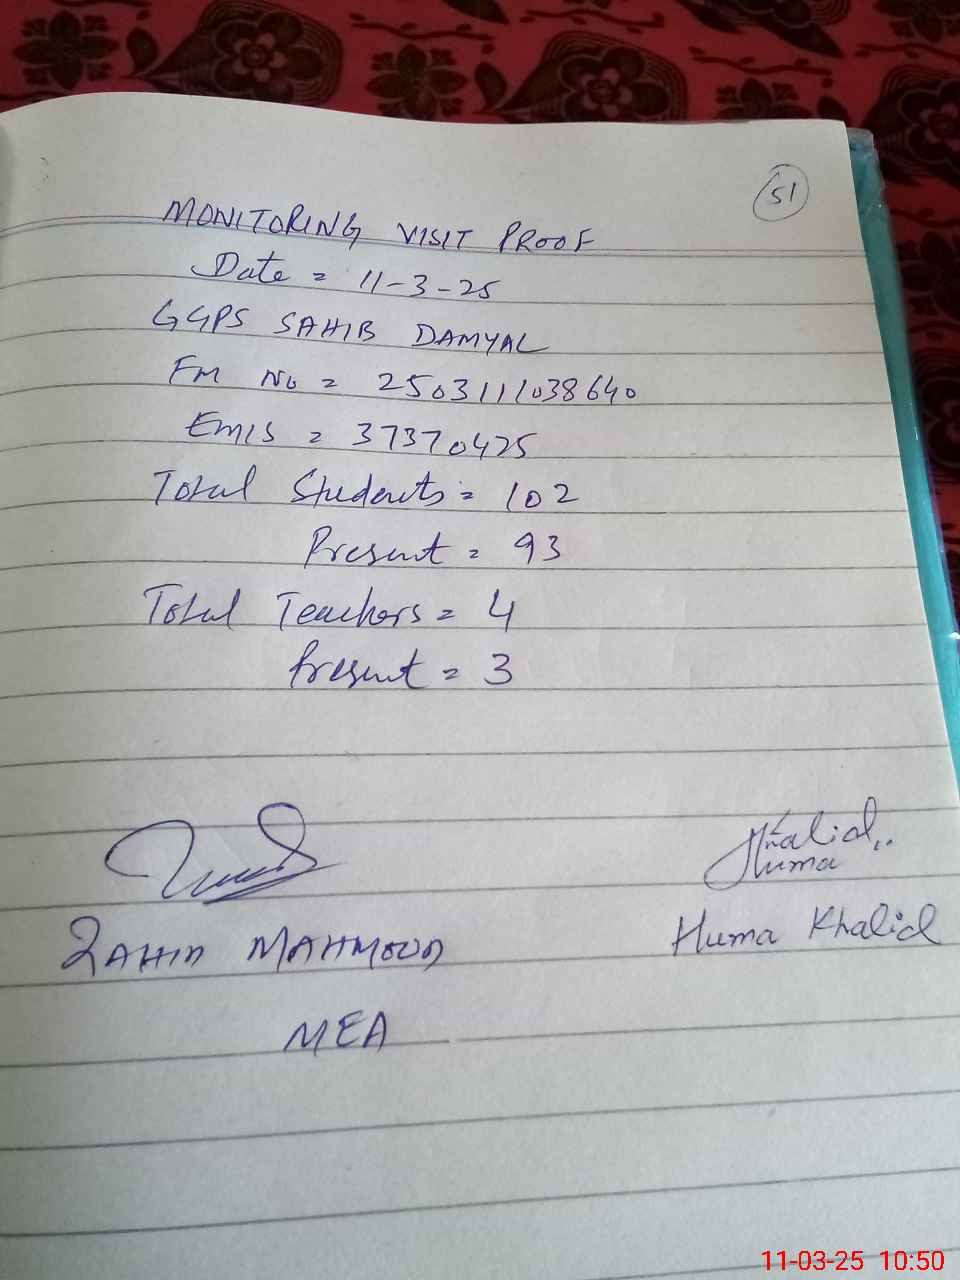 51
MONITORING VISIT PROOF
Date = 11-3-25
GGPS SAHIB DAMYAL
FM No = 2503111038640
EMIS = 37370425
Total Students = 102
Present = 93
Total Teachers = 4
Present = 3
Khalid..
Huma
ZAHID MAHMOOD
Huma Khalid
MEA
11-03-25 10:50